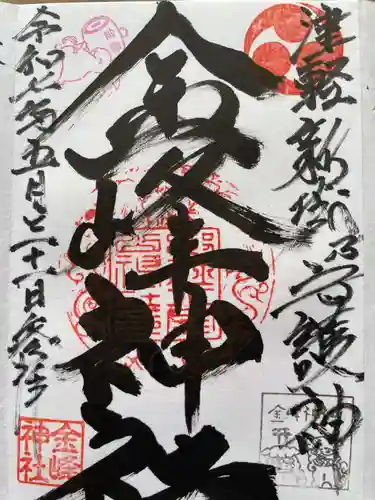 津軽新街乃守護神
金峰神社
令和七年五月二十一日参拝
金峰神社